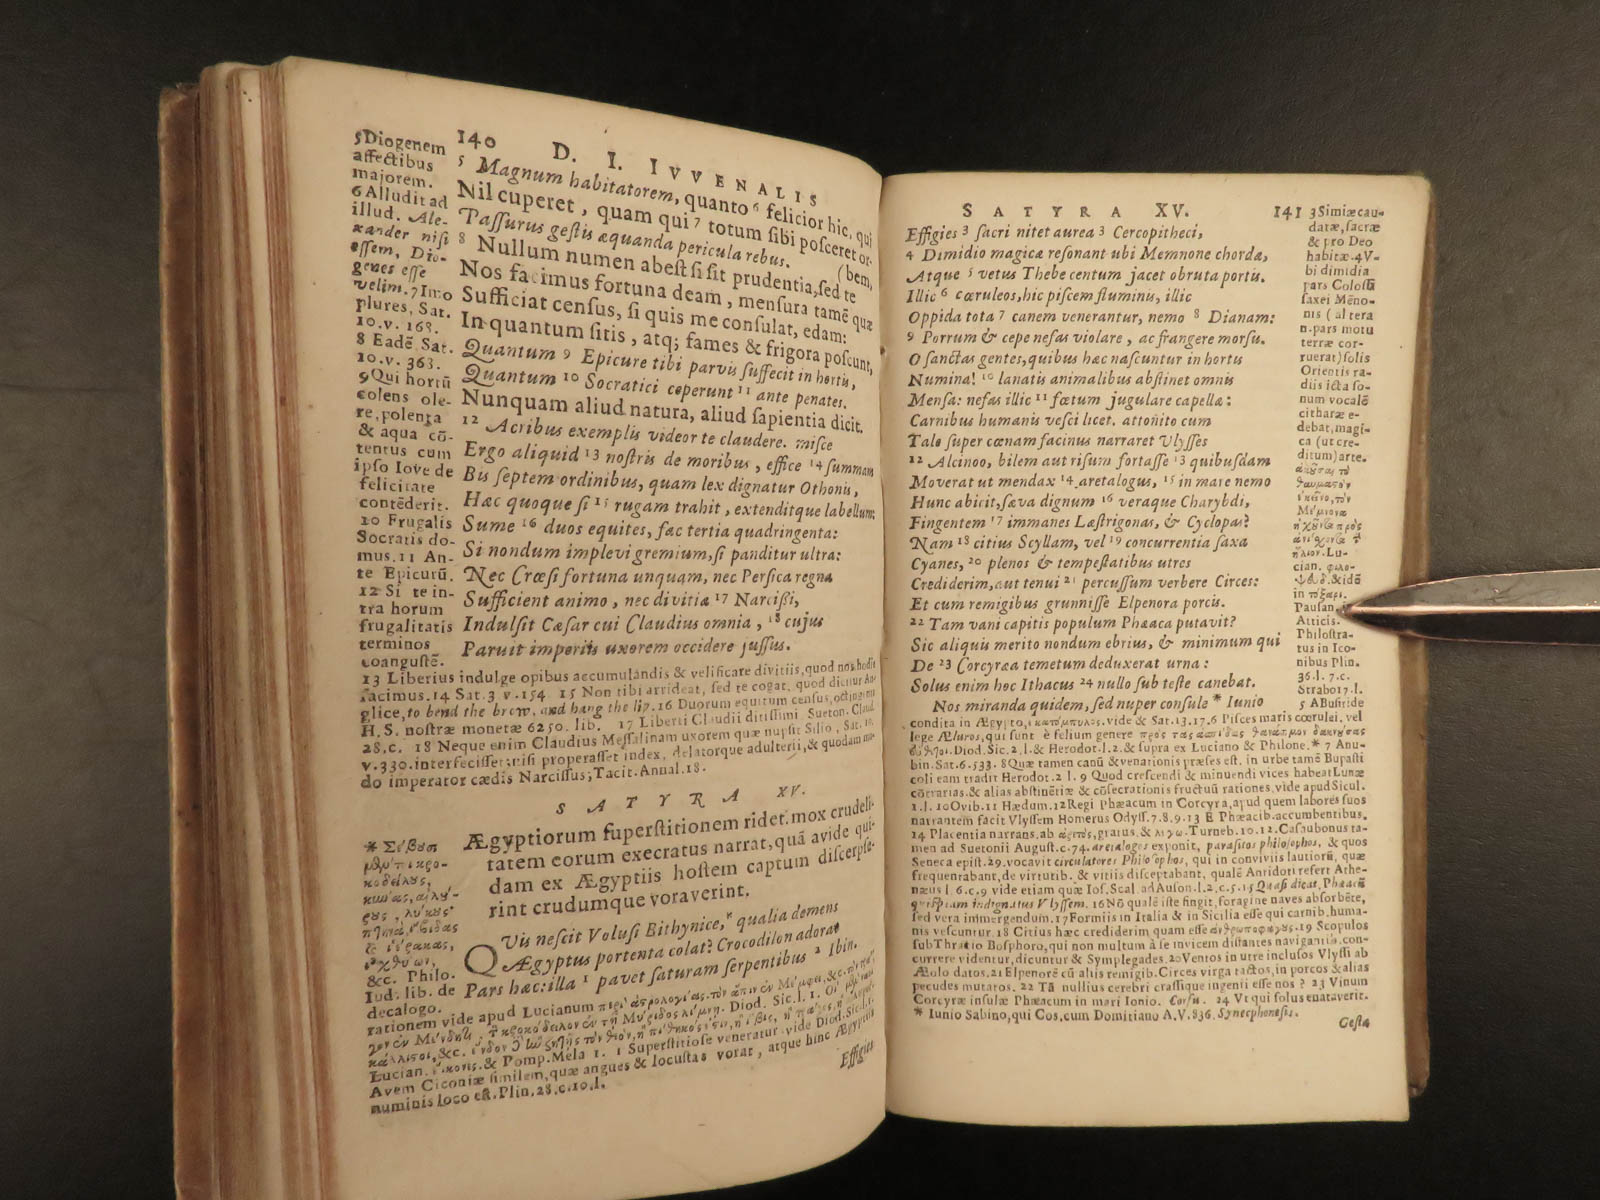 140 D. I. IVVENALIS
5 Magnum habitatorem, quanto 6 felicior hic, qui
Nil cuperet, quam qui 7 totum sibi posceret or-
Passurus gestis æquanda pericula rebus. (bem,
8 Nullum numen abest si sit prudentia, sed te
Nos facimus fortuna deam, mensura tamē quæ
Sufficiat census, si quis me consulat, edam:
In quantum sitis, atq; fames & frigora poscunt,
Quantum 9 Epicure tibi parvis suffecit in hortis,
Quantum 10 Socratici ceperunt 11 ante penates.
Nunquam aliud natura, aliud sapientia dicit.
12 Acribus exemplis videor te claudere. misce
Ergo aliquid 13 nostris de moribus, effice 14 summam
Bis septem ordinibus, quam lex dignatur Othonis,
Hæc quoque si 15 rugam trahit, extenditque labellum:
Sume 16 duos equites, fac tertia quadringenta:
Si nondum implevi gremium, si panditur ultra:
Nec Crœsi fortuna unquam, nec Persica regna
Sufficient animo, nec divitiæ 17 Narcißi,
Indulsit Cæsar cui Claudius omnia, 18 cujus
Paruit imperiis uxorem occidere jussus.
5 Diogenem
affectibus
majorem.
6 Alludit ad
illud. Ale-
xander nisi
essem, Dio-
genes esse
velim. 7 Imo
plures, Sat.
10. v. 168.
8 Eadē Sat.
10. v. 363.
9 Qui hortū
colens ole-
re, polenta
& aqua cō-
tentus cum
ipso Iove de
felicitate
contēderit.
10 Frugalis
Socratis do-
mus. 11 An-
te Epicurū.
12 Si te in-
tra horum
frugalitatis
terminos
coangustē.
13 Liberius indulge opibus accumulandis & velificare divitiis, quod nos hodie
facimus. 14 Sat. 3 v. 154. 15 Non tibi arrideat, sed te cogat, quod dicitur An-
glice, to bend the brow, and hang the lip. 16 Duorum equitum census, octingenta
H. S. nostræ monetæ 6250. lib. 17 Liberti Claudii ditissimi Sueton. Claud.
28. c. 18 Neque enim Claudius Messalinam uxorem quæ nupsit Silio, Sat. 10.
v. 330. interfecisset; nisi properasset index, delatorque adulterii, & quodam mo-
do imperator cædis Narcissus; Tacit. Annal. 18.
SATYRA XV.
Ægyptiorum superstitionem ridet. mox crudeli-
tatem eorum execratus narrat, quā avide qui-
dam ex Ægyptiis hostem captum discerpse-
rint crudumque voraverint.
QVis nescit Volusi Bithynice, * qualia demens
Ægyptus portenta colat? Crocodilon adorat
Pars hæc: illa 1 pavet saturam serpentibus 2 Ibin.
&c. Philo.
Iud. lib. de
decalogo.
rationem vide apud Lucianum
Diod. Sic. l. 1.
Lucian. & Pomp. Mela 1. 1 Superstitiose veneratur vide Diod. Sic. l. 1.
Avem Ciconiæ similem, quæ angues & locustas vorat, atque hinc Ægyptiis
numinis loco est. Plin. 28. c. 10. l.
Effigies
SATYRA XV. 141
Effigies 3 sacri nitet aurea 3 Cercopitheci,
4 Dimidio magicæ resonant ubi Memnone chordæ,
Atque 5 vetus Thebe centum jacet obruta portis.
Illic 6 cæruleos, hic piscem fluminis, illic
Oppida tota 7 canem venerantur, nemo 8 Dianam:
9 Porrum & cepe nefas violare, ac frangere morsu.
O sanctas gentes, quibus hæc nascuntur in hortu
Numina! 10 lanatis animalibus abstinet omnis
Mensa: nefas illic 11 fœtum jugulare capellæ:
Carnibus humanis vesci licet. attonito cum
Tale super cœnam facinus narraret Ulysses
12 Alcinoo, bilem aut risum fortasse 13 quibusdam
Moverat ut mendax 14 aretalogus, 15 in mare nemo
Hunc abicit, sæva dignum 16 veraque Charybdi,
Fingentem 17 immanes Læstrigonas, & Cyclopas?
Nam 18 citius Scyllam, vel 19 concurrentia saxa
Cyanes, 20 plenos & tempestatibus utres
Crediderim, aut tenui 21 percussum verbere Circes:
Et cum remigibus grunnisse Elpenora porcis.
22 Tam vani capitis populum Phæaca putavit?
Sic aliquis merito nondum ebrius, & minimum qui
De 23 Corcyræa temetum deduxerat urna:
Solus enim hoc Ithacus 24 nullo sub teste canebat.
Nos miranda quidem, sed nuper consule * Iunio
3 Simiæ cau-
datæ, sacræ
& pro Deo
habitæ. 4 V-
bi dimidia
pars Colossi
saxei Mēno-
nis (altera
n. pars motu
terræ cor-
ruerat) solis
Orientis ra-
diis icta so-
num vocalē
citharæ e-
debat, magi-
ca (ut cre-
ditum) arte.
Lu-
cian.
& idē
in
Pausan.
Atticis.
Philostra-
tus in Ico-
nibus Plin.
36. l. 7. c.
Strabo 17. l.
5 A Busiride
condita in Ægypto, vide & Sat. 13. 17. 6 Pisces maris cœrulei, vel
lege Æluros, qui sunt è felium genere
Diod. Sic. 2. l. & Herodot. l. 2. & supra ex Luciano & Philone. * 7 Anu-
bin. Sat. 6. 533. 8 Quæ tamen canū & venationis præses est, in urbe tamē Bupasti
coli eam tradit Herodot. 2 l. 9 Quod crescendi & minuendi vices habeat Lunæ
cōtrarias. & alias abstinētiæ & cōsecrationis fructuū rationes, vide apud Sicul.
1. l. 10 Ovib. 11 Hædum. 12 Regi Phæacum in Corcyra, apud quem labores suos
narrantem facit Vlyssem Homerus Odyss. 7. 8. 9. 13 E Phæacib. accumbentibus.
14 Placentia narrans, ab gratus, & Turneb. 10. 12. Casaubonus ta-
men ad Suetonii August. c. 74. aretalogos exponit, parasitos philosophos, & quos
Seneca epist. 29. vocavit circulatores Philosophos, qui in conviviis lautiorū, quæ
frequentabant, de virtutib. & vitiis disceptabant, qualē Anridori refert Athe-
næus l 6. c. 9 vide etiam quæ Ios. Scal. ad Auson. l. 2. c. 5. 15 Quasi dicat, Phæacū
quispiam indignatus Vlyssem. 16 Nō qualē iste fingit, foragine naves absorbēte,
sed vera immergendum. 17 Formiis in Italia & in Sicilia esse qui carnib. huma-
nis vescuntur. 18 Citius hæc crediderim quam esse 19 Scopulos
sub Thracio Bosphoro, qui non multum à se invicem distantes navigantib. con-
currere videntur, dicuntur & Symplegades. 20 Ventos in utre inclusos Vlyssi ab
Æolo datos. 21 Elpenorē cū aliis remigib. Circes virga tactos, in porcos & alias
pecudes mutatos. 22 Tā nullius cerebri crassique ingenii esse nos? 23 Vinum
Corcyræ insulæ Phæacum in mari Ionio. Corfu. 24 Vt qui solus enataverit.
* Iunio Sabino, qui Cos. cum Domitiano A. V. 836. Synecphonesis.
Gesta